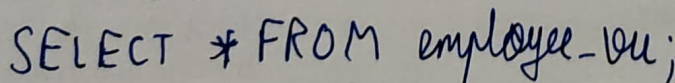 SELECT * FROM employee_vu;